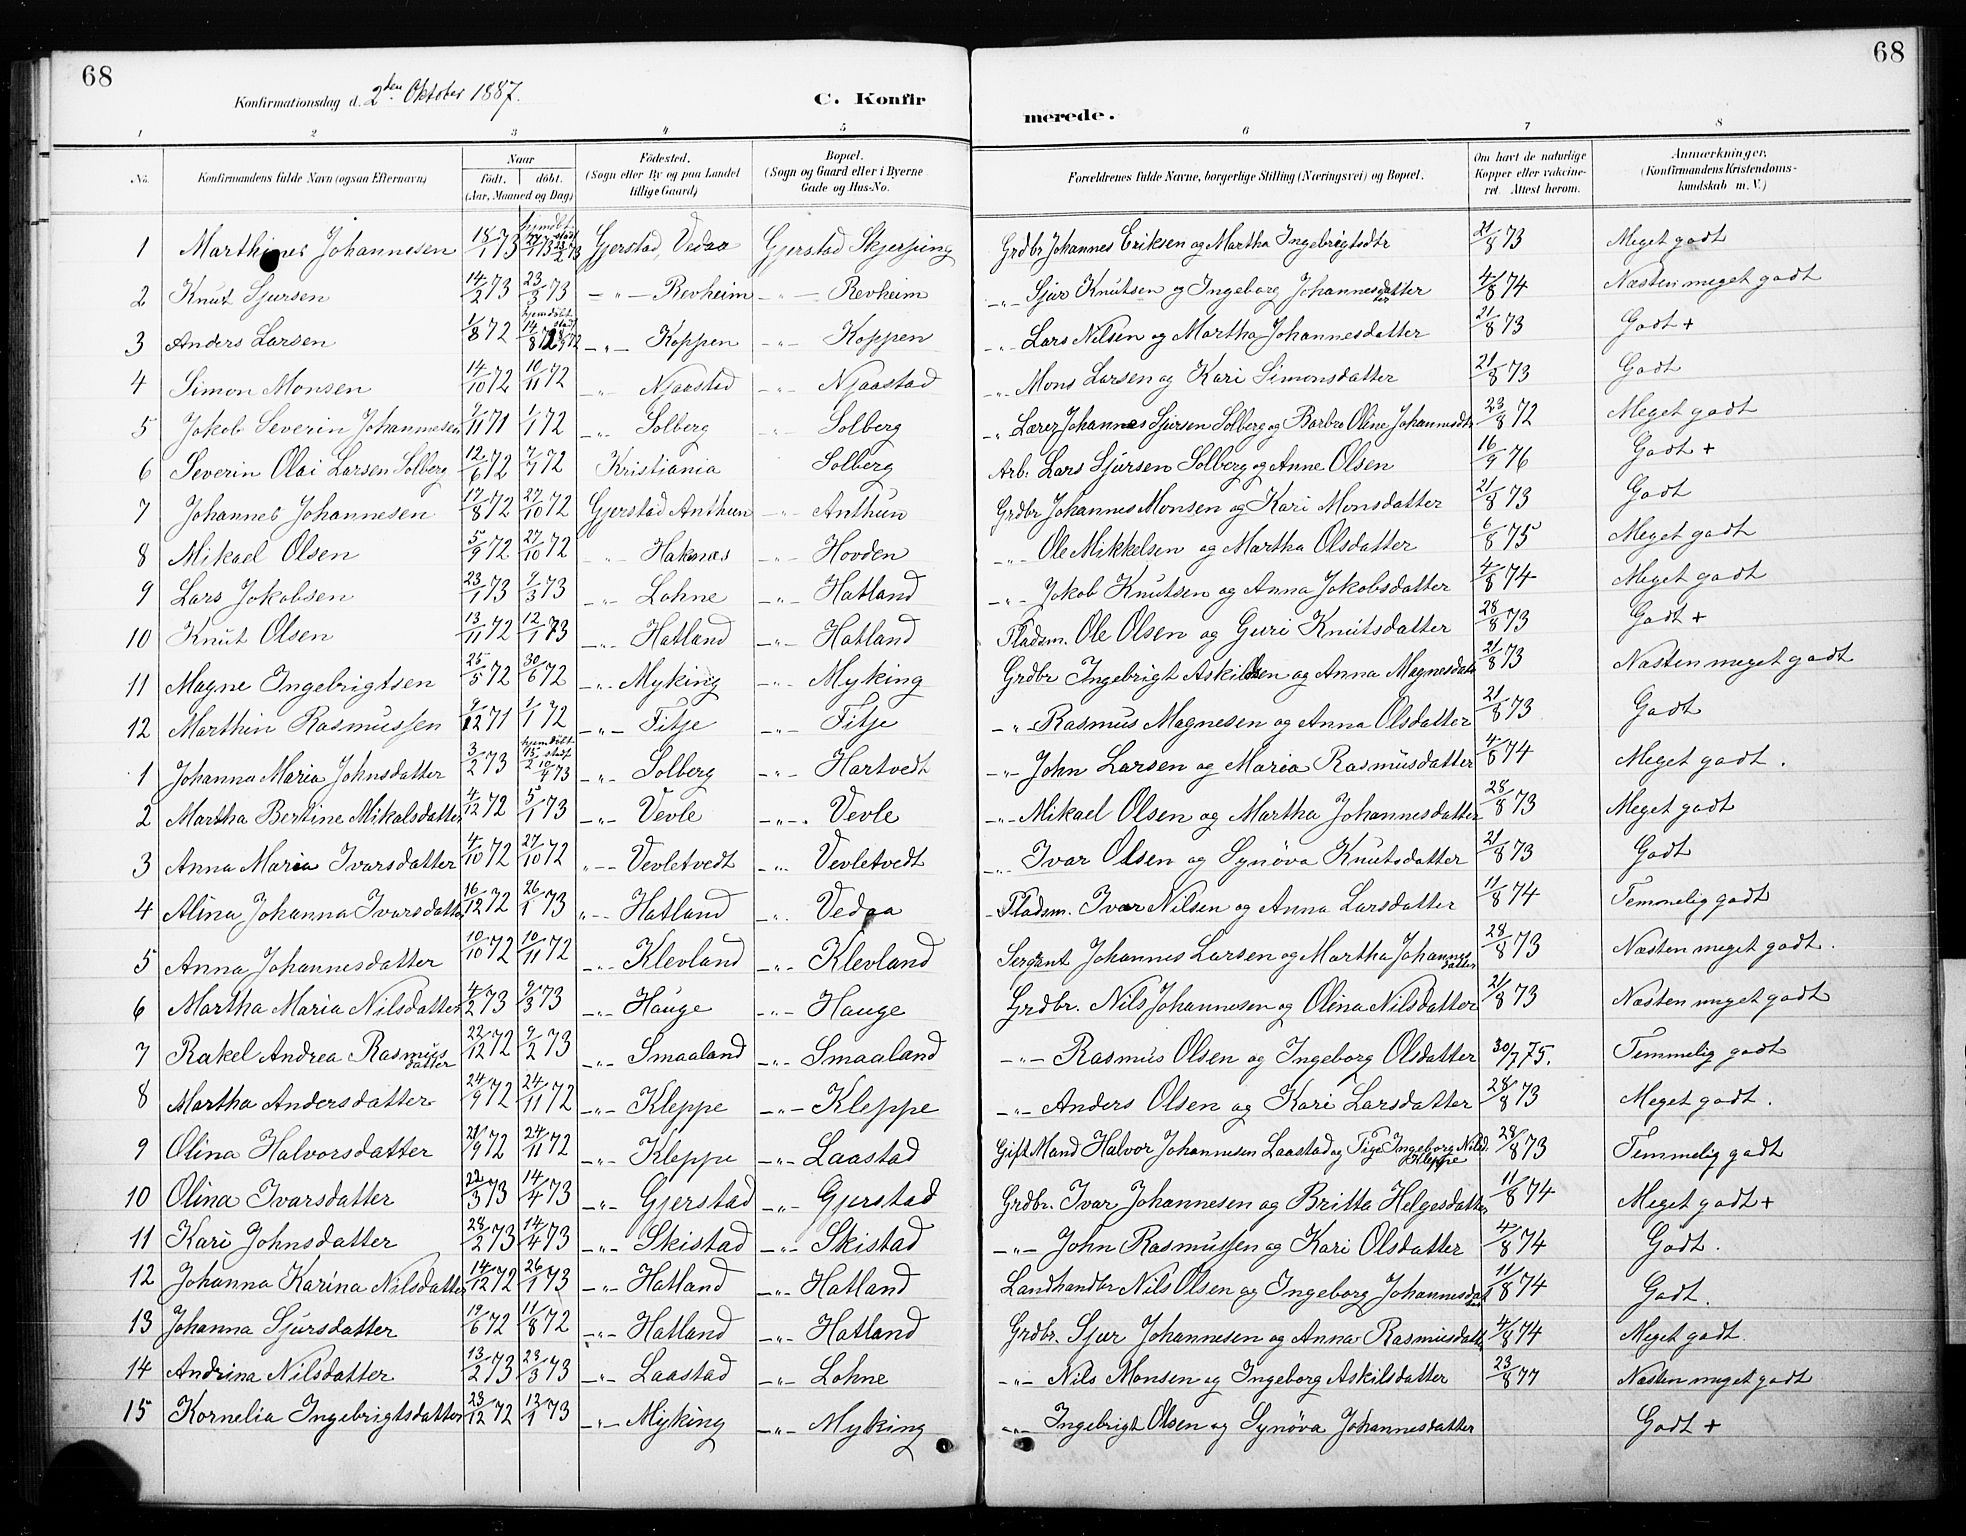 68
68
Konfirmationsdag d. 2den Oktober 1887.
C. Konfir
merede.
1 2 3 4 5 6 7 8
No. Konfirmandens fulde Navn (ogsaa Efternavn) Naar Födt. döbt. (Aar, Maaned og Dag) Födested. (Sogn eller By og paa Landet tillige Gaard) Bopæl. (Sogn og Gaard eller i Byerne Gade og Hus-No. Forældrenes fulde Navne, borgerlige Stilling (Næringsvei) og Bopæl. Om havt de naturlige Kopper eller vakcineret. Attest herom. Anmærkninger. (Konfirmandens Kristendomskundskab m. V.)
1 Marthines Johannesen 18/1 73 hjemdöbt stadf. 23/2 73 Gjerstad, Vedaa Gjerstad Skjerjing Grdbr Johannes Eriksen og Martha Ingebrigtsdtr 21/8 73 Meget godt
2 Knut Sjursen 14/2 73 23/3 73 -"- Revheim -"- Revheim -"- Sjur Knutsen og Ingeborg Johannesdatter 4/8 74 Næsten meget godt
3 Anders Larsen 1/8 72 hjemdöbt 14/8 stadf. 72 -"- Koppen -"- Koppen -"- Lars Nilsen og Martha Johannesdatter 21/8 73 Godt +
4 Simon Monsen 14/10 72 10/11 72 " Njaastad -"- Njaastad -"- Mons Larsen og Kari Simonsdatter 21/8 73 Godt
5 Jakob Severin Johannesen 7/11 71 1/1 72 -"- Solberg " Solberg -"- Lærer Johannes Sjursen Solberg og Barbro Oline Johannesdtr 23/8 72 Meget godt
6 Severin Olai Larsen Solberg 12/6 72 7/7 72 Kristiania Solberg Arb. Lars Sjursen Solberg og Anne Olsen 16/9 76 Godt +
7 Johannes Johannesen 17/8 72 27/10 72 Gjerstad Anthun -"- Anthun Grdbr Johannes Monsen og Kari Monsdatter 21/8 73 Godt
8 Mikael Olsen 5/9 72 27/10 72 -"- Haknæs -"- Hovden -"- Ole Mikkelsen og Martha Olsdatter 6/8 75 Meget godt
9 Lars Jokobsen 23/1 73 9/3 73 -"- Lohne -"- Hatland -"- Jokob Knutsen og Anna Jokobsdatter 4/8 74 Meget godt
10 Knut Olsen 13/11 72 12/1 73 -"- Hatland -"- Hatland Pladsm. Ole Olsen og Guri Knutsdatter 28/8 73 Godt +
11 Magne Ingebrigtsen 25/5 72 30/6 72 -"- Myking -"- Myking Grdbr Ingebrigt Askildsen og Anna Magnesdatr 21/8 73 Næsten meget godt
12 Marthin Rasmussen 9/12 71 1/1 72 -"- Fitje -"- Fitje -"- Rasmus Magnesen og Anna Olsdatter 21/8 73 Godt
1 Johanna Maria Johnsdatter 3/2 73 hjemdöbt 15/2 stadf. 10/4 73 -"- Solberg -"- Hartvedt -"- John Larsen og Maria Rasmusdatter 4/8 74 Meget godt.
2 Martha Bertine Mikalsdatter 4/12 72 5/1 73 -"- Vevle -"- Vevle -"- Mikael Olsen og Martha Johannesdatter 28/8 73 Meget godt
3 Anna Maria Ivarsdatter 4/10 72 27/10 72 -"- Vevletvedt -"- Vevletvedt -"- Ivar Olsen og Synöva Knutsdatter 21/8 73 Godt
4 Alina Johanna Ivarsdatter 16/12 72 26/1 73 -"- Hatland -"- Vedaa Pladsm. Ivar Nilsen og Anna Larsdatter 11/8 74 Temmelig godt
5 Anna Johannesdatter 10/10 72 10/11 72 -"- Klevland -"- Klevland Sergant Johannes Larsen og Martha Johannesdatter 28/8 73 Næsten meget godt.
6 Martha Maria Nilsdatter 4/2 73 9/3 73 -"- Hauge -"- Hauge Grdbr. Nils Johannesen og Olina Nilsdatter 21/8 73 Næsten meget godt
7 Rakel Andrea Rasmusdatter 22/12 72 9/2 73 -"- Smaaland -"- Smaaland -"- Rasmus Olsen og Ingeborg Olsdatter 30/7 75. Temmelig godt
8 Martha Andersdatter 24/9 72 24/11 72 -"- Kleppe -"- Kleppe -"- Anders Olsen og Kari Larsdatter 28/8 73 Meget godt.
9 Olina Halvorsdatter 21/9 72 24/11 72 -"- Kleppe -"- Laastad Gift Mand Halvor Johannesen Laastad og Pige Ingeborg Nilsd. Kleppe 28/8 73 Temmelig godt
10 Olina Ivarsdatter 22/3 73 14/4 73 -"- Gjerstad -"- Gjerstad Grdbr. Ivar Johannesen og Britta Helgesdatter 11/8 74 Meget godt +
11 Kari Johnsdatter 28/2 73 14/4 73 -"- Skistad -"- Skistad -"- John Rasmussen og Kari Olsdatter 4/8 74 Godt.
12 Johanna Karina Nilsdatter 14/12 72 26/1 73 -"- Hatland -"- Hatland Landhandlr Nils Olsen og Ingeborg Johannesdatter 11/8 74 Godt.
13 Johanna Sjursdatter 19/6 72 11/8 72 -"- Hatland -"- Hatland Grdbr. Sjur Johannesen og Anna Rasmusdatter 4/8 74 Meget godt.
14 Andrina Nilsdatter 13/2 73 23/3 73 -"- Laastad -"- Lohne -"- Nils Monsen og Ingeborg Askilsdatter 23/8 77 Næsten meget godt
15 Kornelia Ingebrigtsdatter 23/12 72 12/1 73 -"- Myking -"- Myking -"- Ingebrigt Olsen og Synöva Johannesdatter Godt +